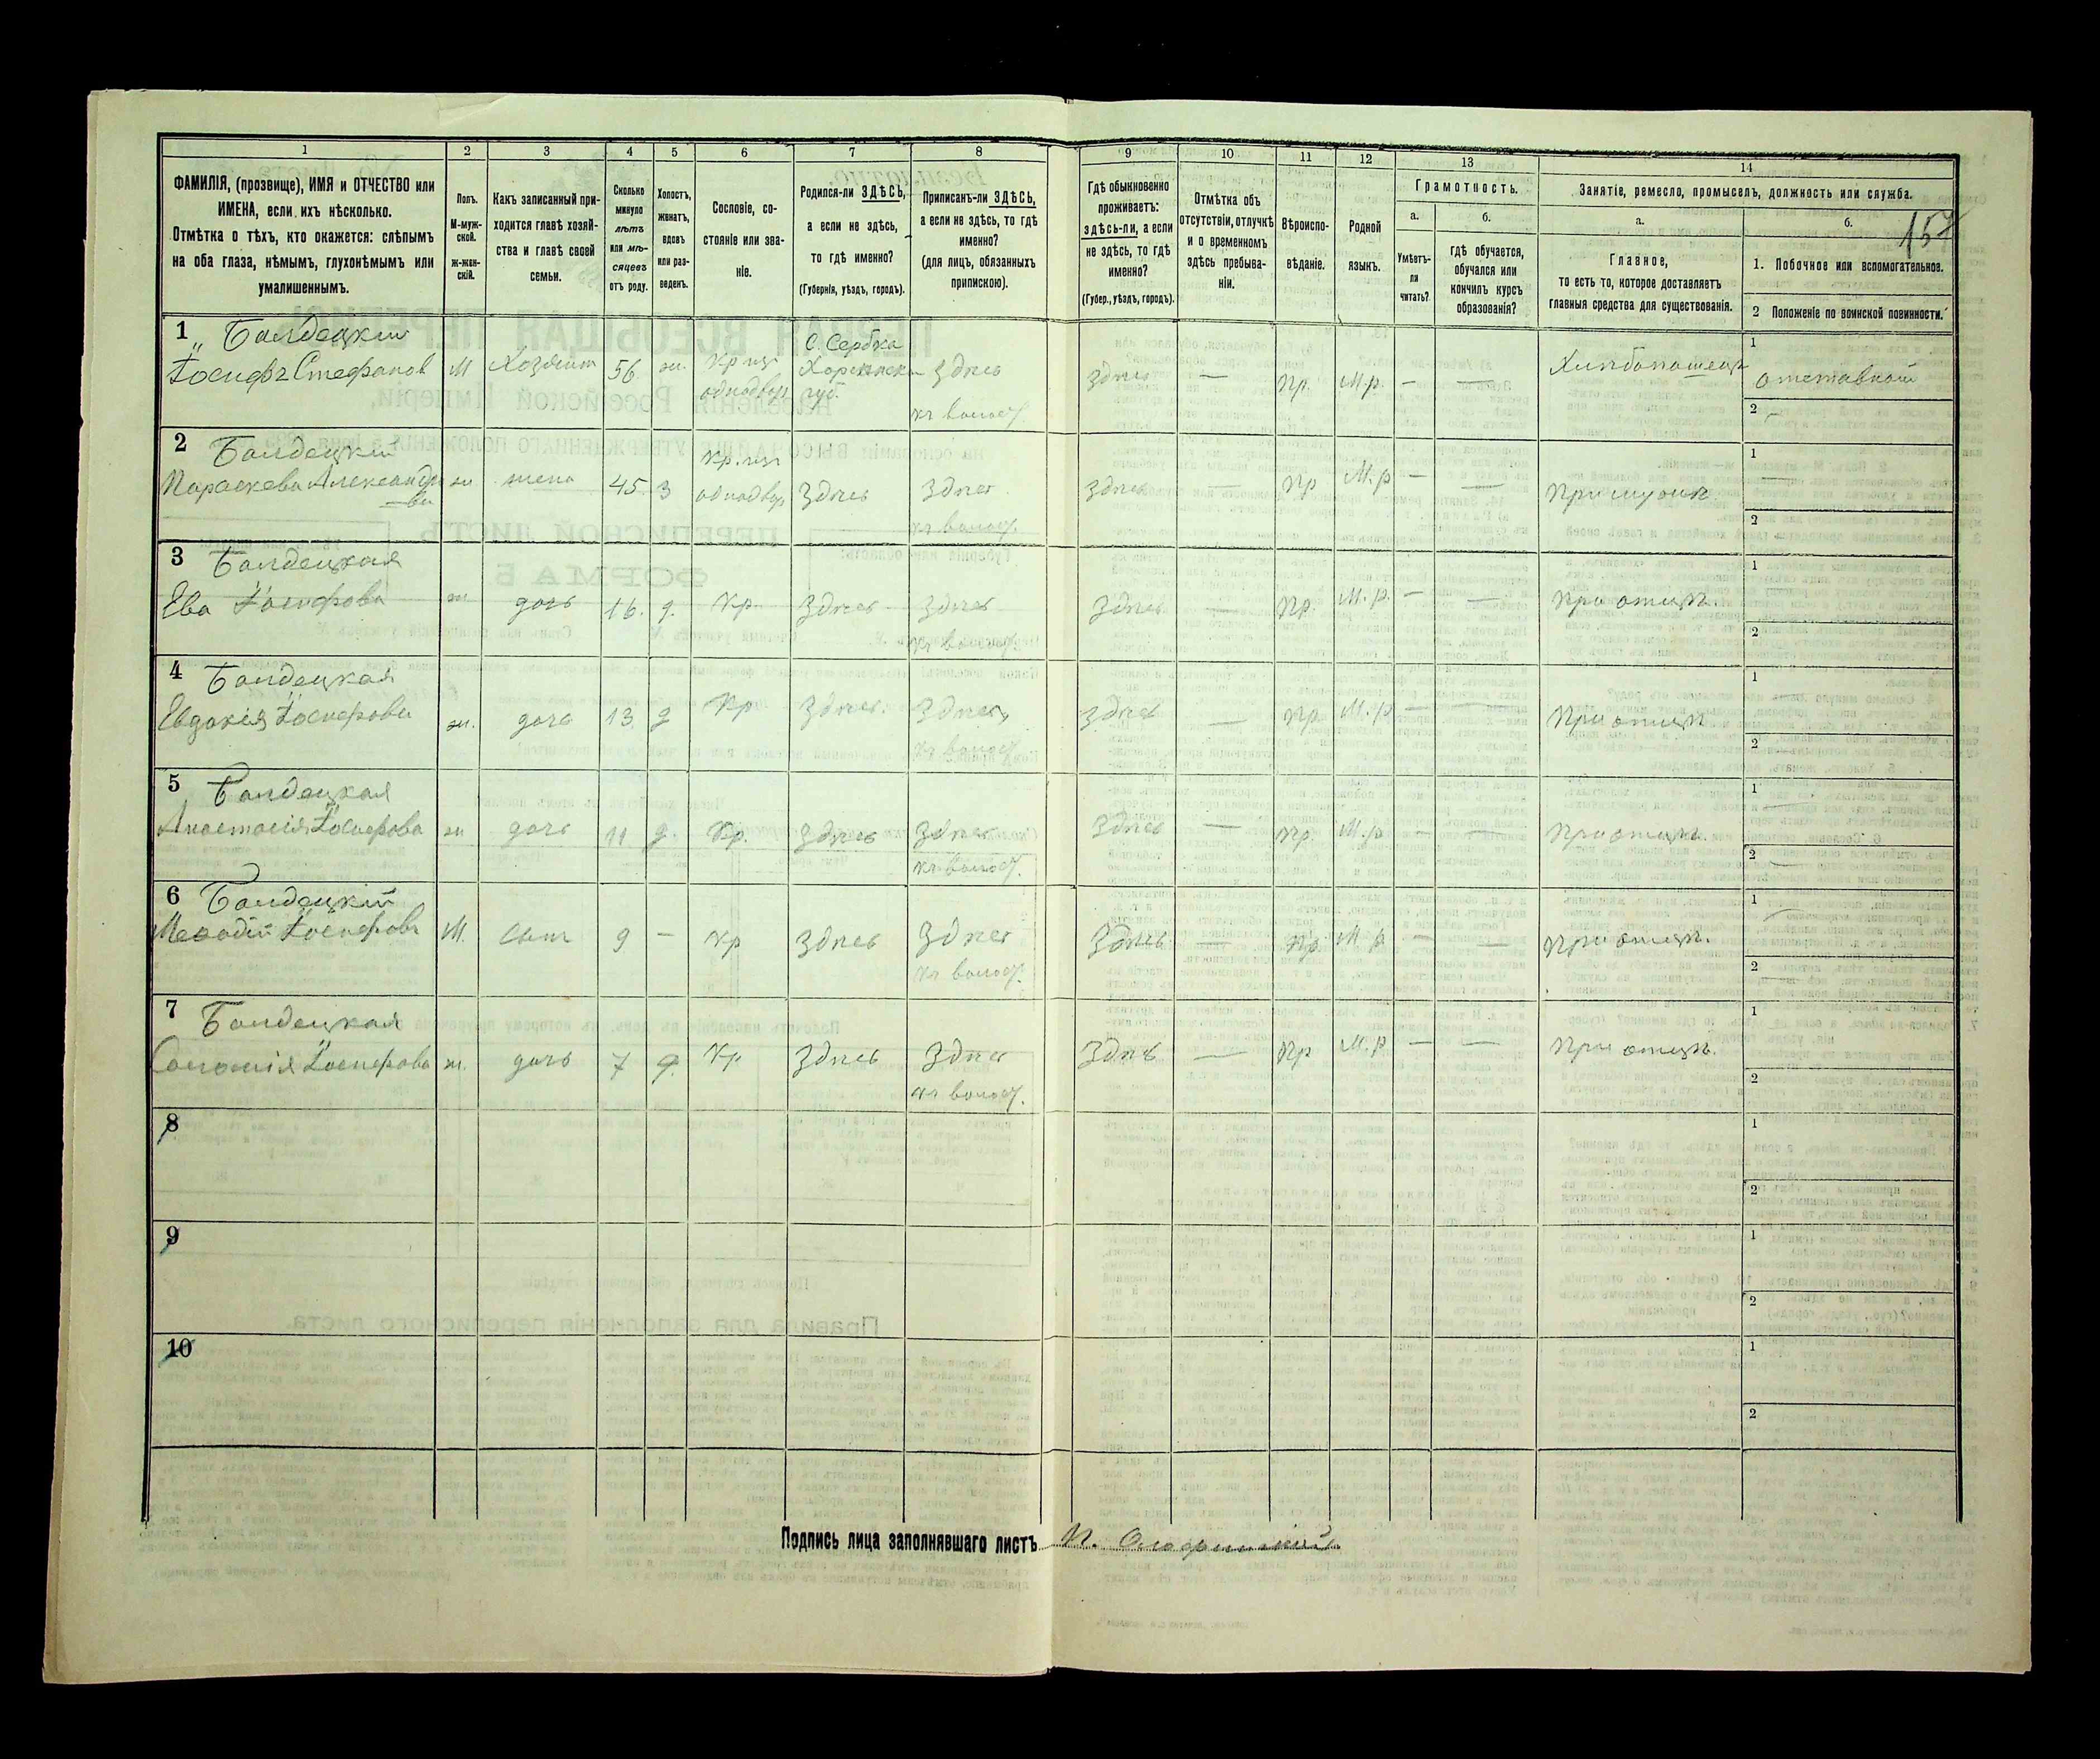 157
1 2 3 4 5 6 7 8 9 10 11 12 13 14
ФАМИЛІЯ, (прозвище), ИМЯ и ОТЧЕСТВО или
ИМЕНА, если ихъ нѣсколько.
Отмѣтка о тѣхъ, кто окажется: слѣпымъ
на оба глаза, нѣмымъ, глухонѣмымъ или
умалишеннымъ.
Полъ.
М-муж-
ской.
ж-жен-
скій.
Какъ записанный при-
ходится главѣ хозяй-
ства и главѣ своей
семьи.
Сколько
минуло
лѣтъ
или мѣ-
сяцевъ
отъ роду.
Холостъ,
женатъ,
вдовъ
или раз-
веденъ.
Сословіе, со-
стояніе или зва-
ніе.
Родился-ли ЗДѢСЬ,
а если не здѣсь,
то гдѣ именно?
(Губернія, уѣздъ, городъ).
Приписанъ-ли ЗДѢСЬ,
а если не здѣсь, то гдѣ
именно?
(для лицъ, обязанныхъ
припискою).
Гдѣ обыкновенно
проживаетъ:
здѣсь-ли, а если
не здѣсь, то гдѣ
именно?
(Губер., уѣздъ, городъ).
Отмѣтка объ
отсутствіи, отлучкѣ
и о временномъ
здѣсь пребыва-
ніи.
Вѣроиспо-
вѣданіе.
Родной
языкъ.
Грамотность.
а.
Умѣетъ-
ли
читать?
б.
Гдѣ обучается,
обучался или
кончилъ курсъ
образованія?
Занятіе, ремесло, промыселъ, должность или служба.
а.
Главное,
то есть то, которое доставляетъ
главныя средства для существованія.
б.
1. Побочное или вспомогательное.
2 Положеніе по воинской повинности.
1 Балдецкій
Іосифъ Стефановъ М Хозяинъ 56 ж. С. Сербка здѣсь здѣсь — пр. М.р. — —
2 Балдецкій
Параскева Александро
ва ж жена 45 З Кр. однодвор Здѣсь Здѣсь Здѣсь — пр М.р — — При мужѣ
3 Балдецкая
Ева Іосифова ж дочь 16. д. Кр. Здѣсь Здѣсь Здѣсь — пр. М.р. — — При отцѣ.
4 Балдецкая
Евдокія Іосифова ж. дочь 13 д Кр Здѣсь. Здѣсь Здѣсь — пр М.р — — При отцѣ
5 Балдецкая
Анастасія Іосифова ж дочь 11 д. Кр. Здѣсь Здѣсь Здѣсь — пр. М.р — — При отцѣ.
6 Балдецкій
Меѳодій Іосифовъ М. сынъ 9 — Кр Здѣсь Здѣсь Здѣсь — пр. М р — — При отцѣ.
7 Балдецкая
Соломія Іосифова ж. дочь 7 д. Кр Здѣсь Здѣсь Здѣсь — пр М.р — — При отцѣ.
8
9
10
Подпись лица заполнявшаго листъ